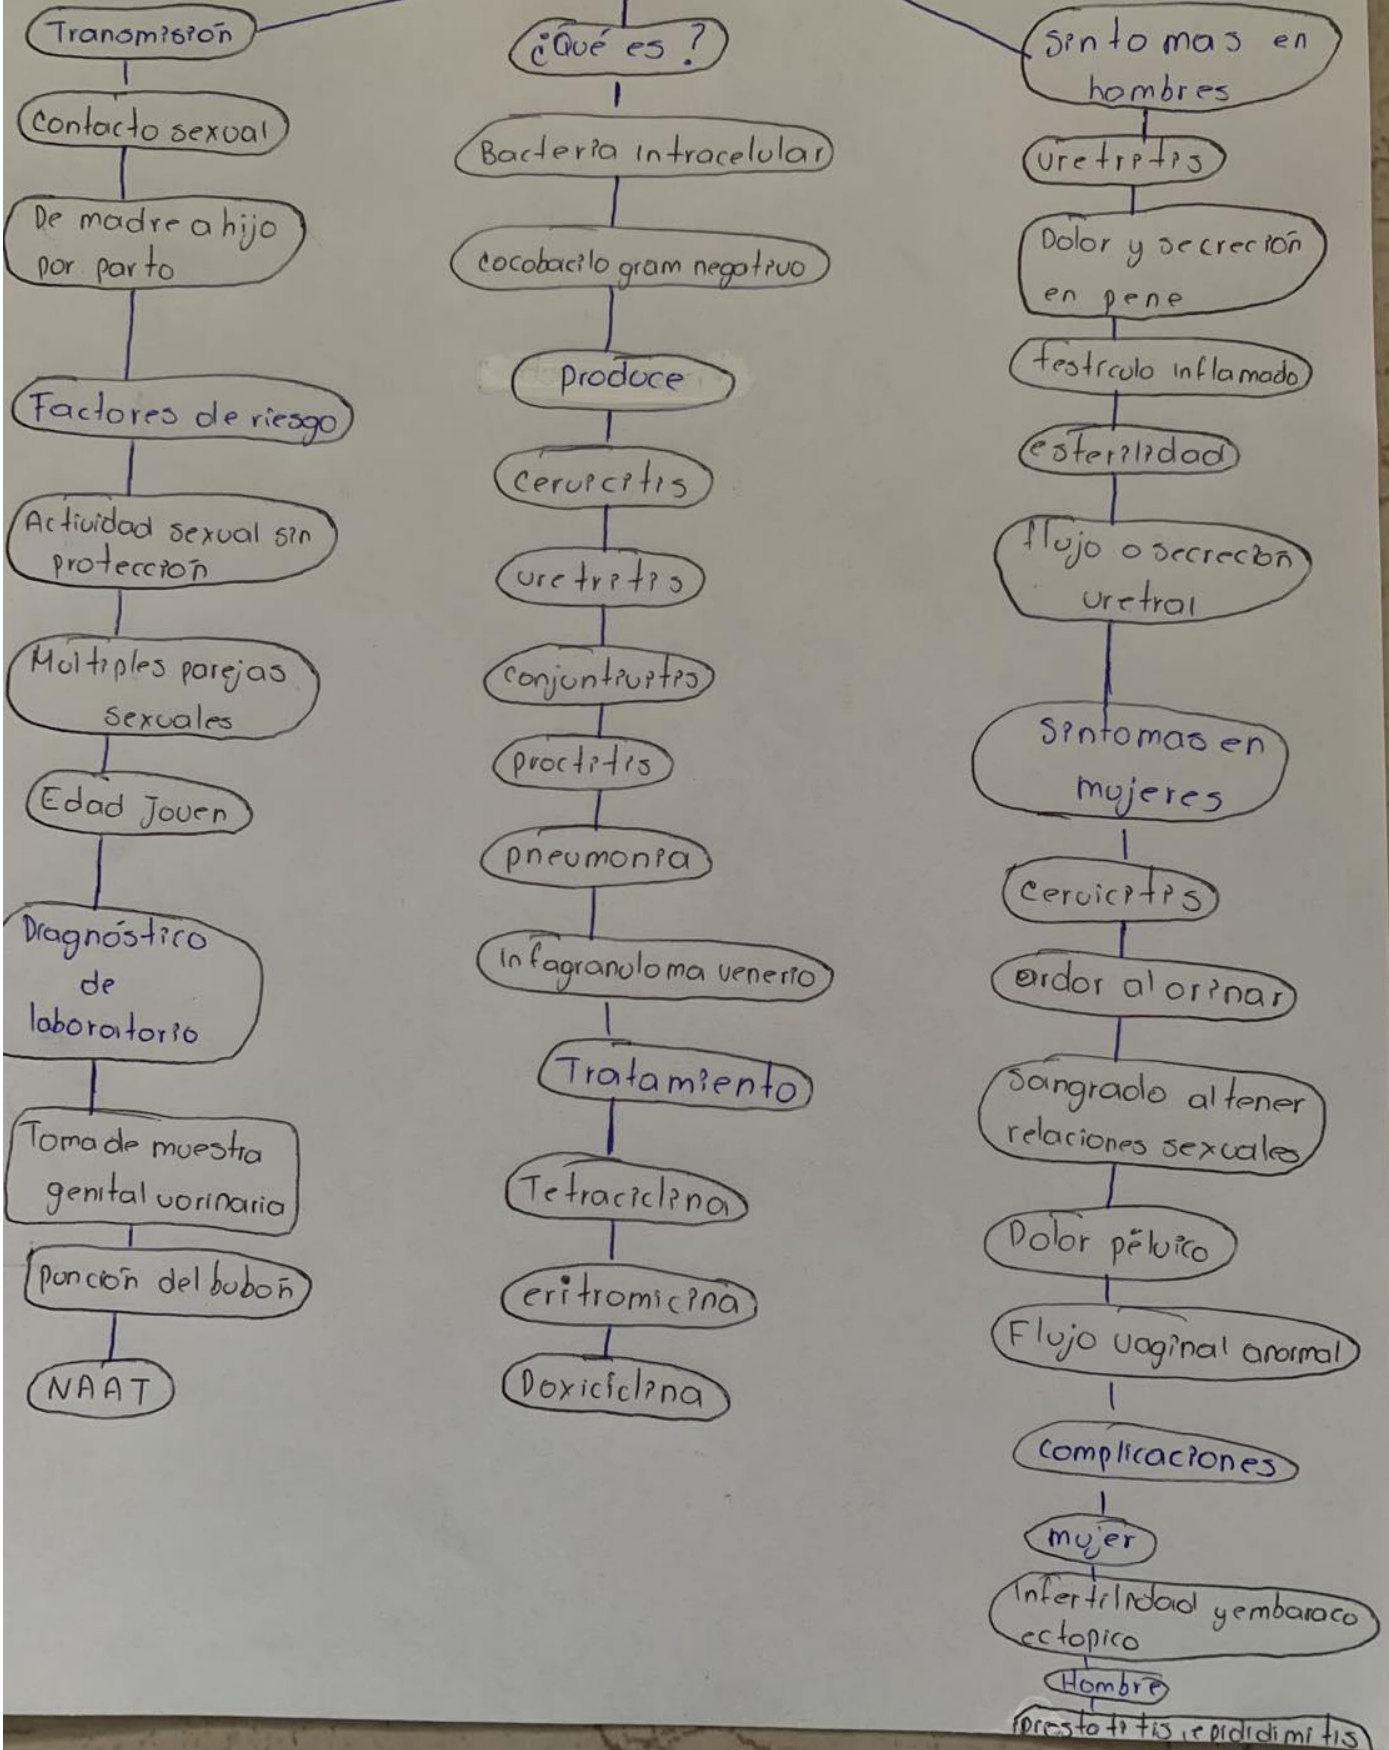 Transmisión
Contacto sexual
De madre a hijo
por parto
Factores de riesgo
Actividad sexual sin
protección
Multiples parejas
sexuales
Edad Joven
Diagnóstico
de
laboratorio
Toma de muestra
genital uorinaria
punción del bubón
NAAT
¿Qué es?
Bacteria intracelular
cocobacilo gram negativo
produce
cervicitis
uretritis
conjuntivitis
proctitis
pneumonia
Infagranuloma venerio
Tratamiento
Tetraciclina
eritromicina
Doxiciclina
Sintomas en
hombres
uretritis
Dolor y secreción
en pene
testiculo inflamado
esterilidad
flujo o secreción
uretral
Sintomas en
mujeres
Cervicitis
ardor al orinar
Sangrado al tener
relaciones sexuales
Dolor pélvico
Flujo vaginal anormal
complicaciones
mujer
Infertilidad y embaraco
ectopico
Hombre
prestotitis, epididimitis